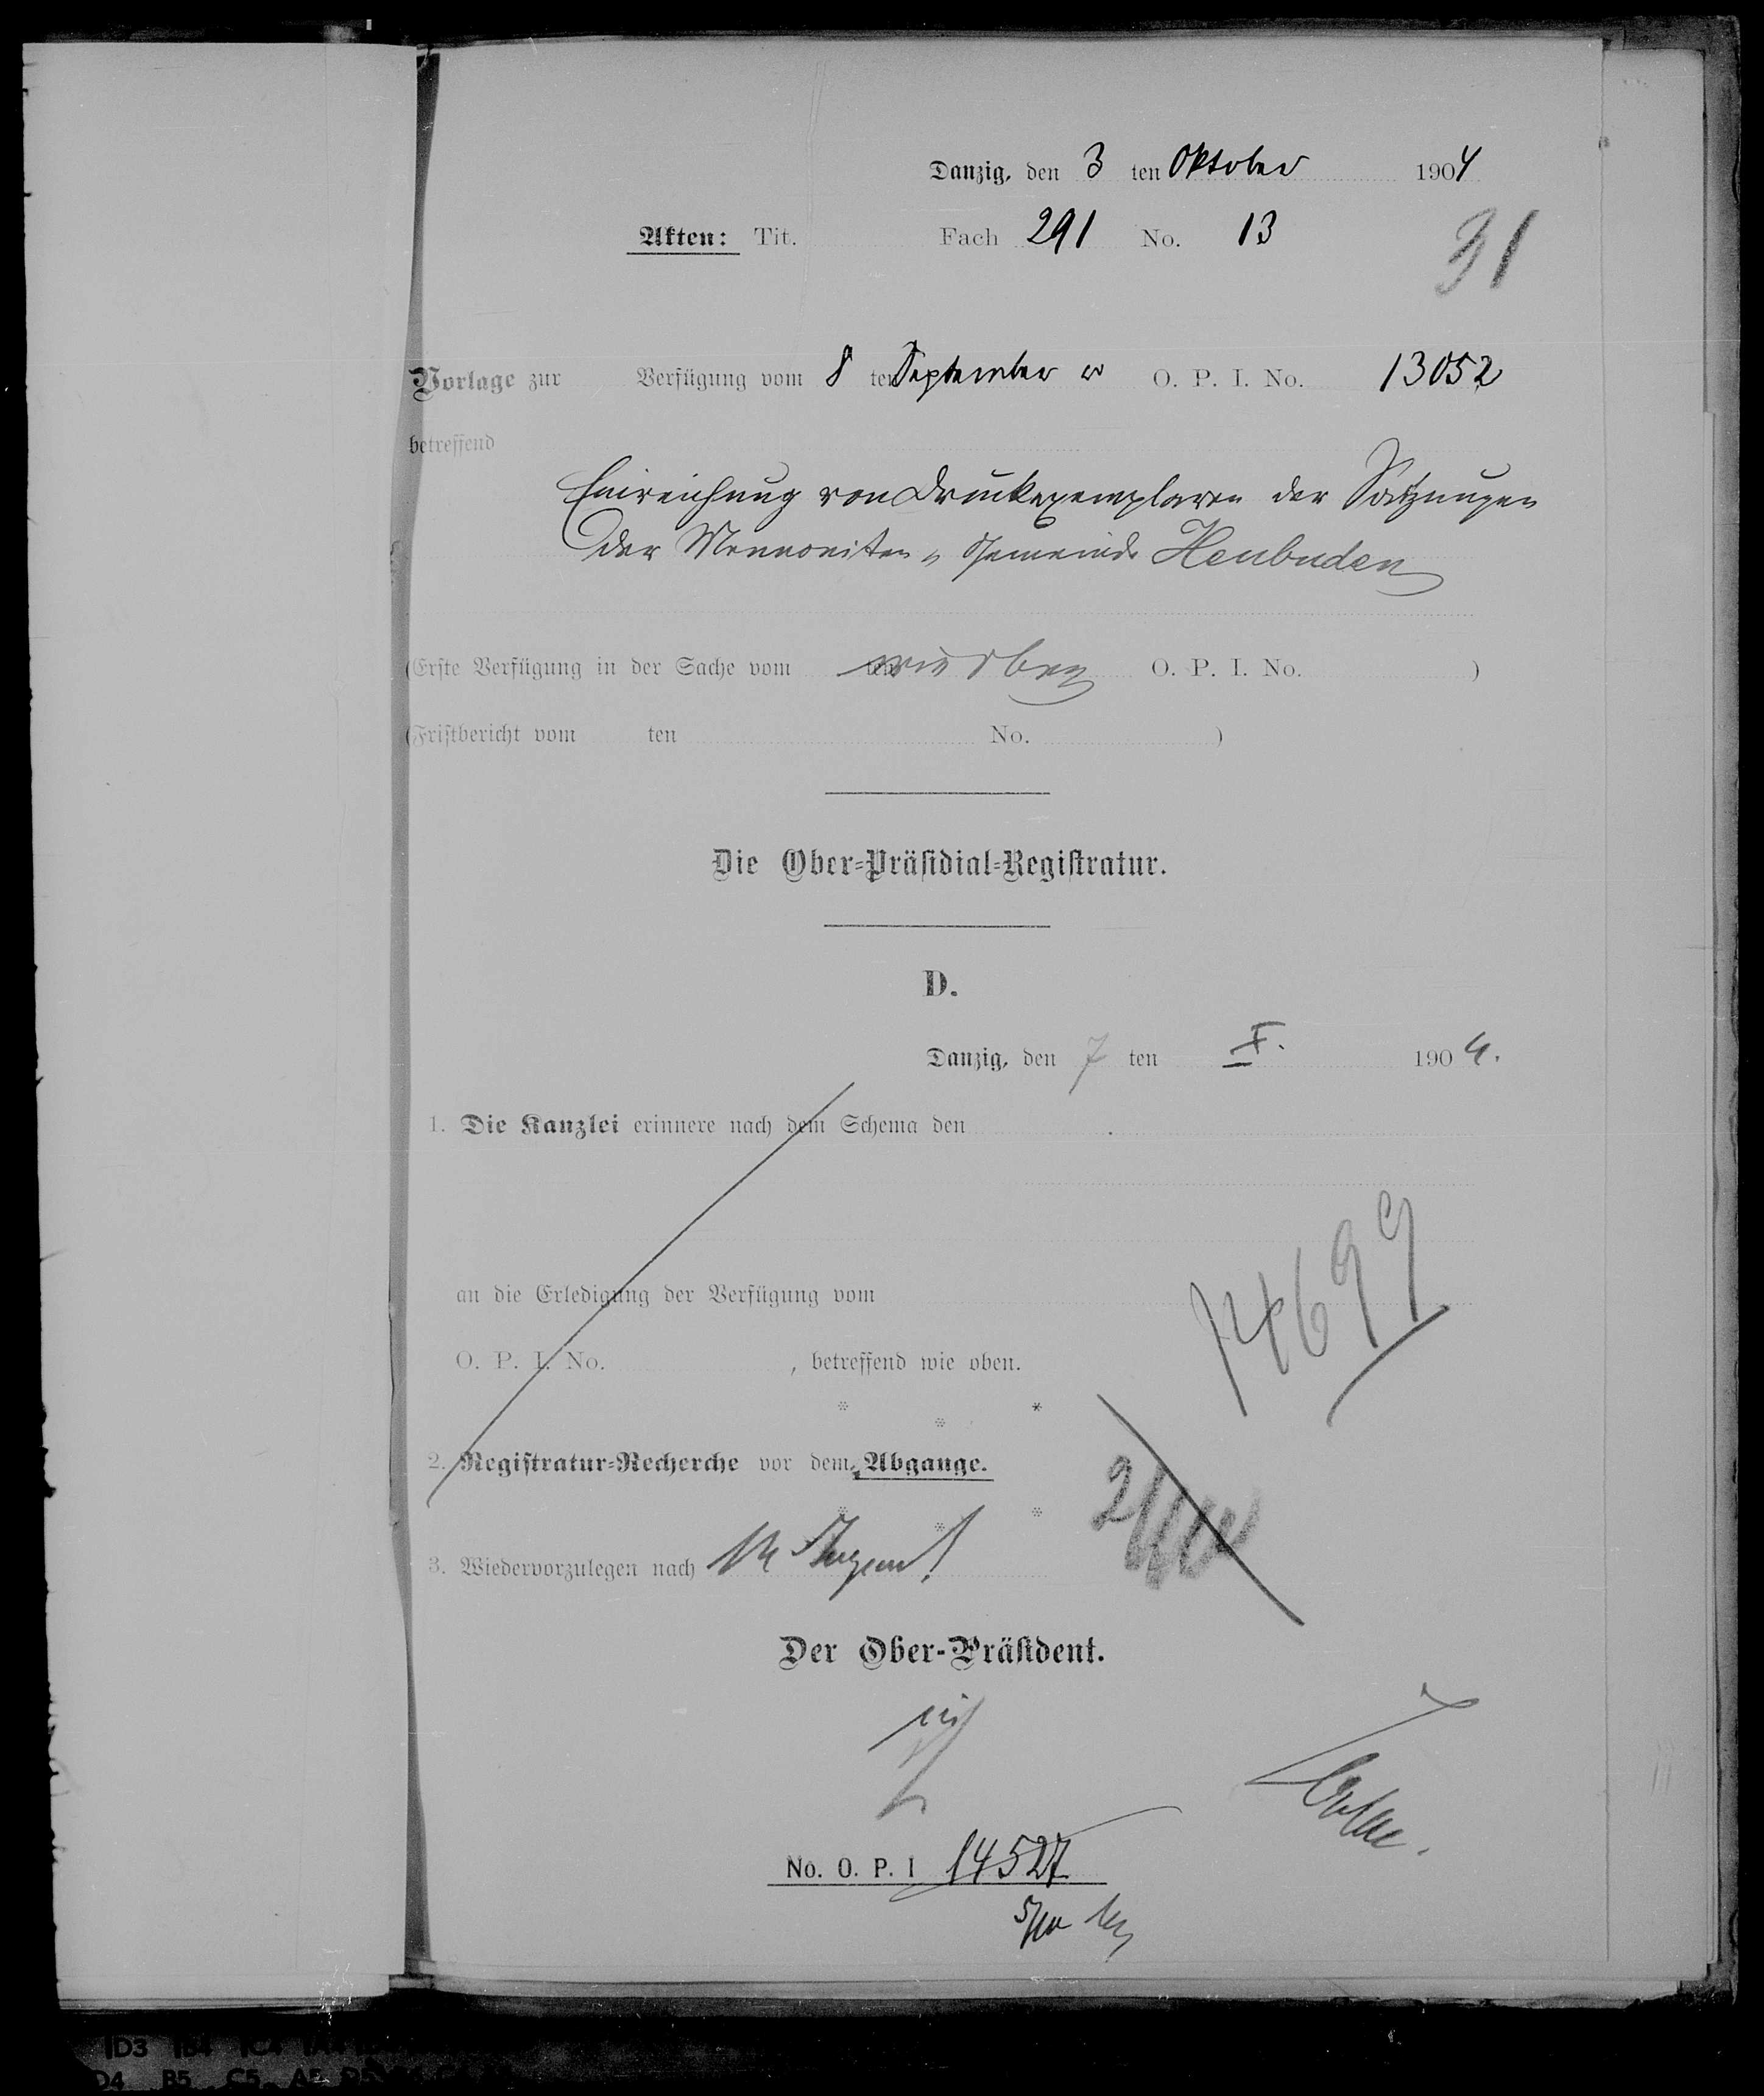 Danzig, den 3 ten Oktober 1904
Akten: Tit. Fach 291 No. 13
31
Vorlage zur Verfügung vom 8 ten September O. P. I. No. 13052
betreffend
Einreichung von Druckexemplaren der Satzungen
der Mennoniten-Gemeinde Heubuden
(Erste Verfügung in der Sache vom ten wie oben O. P. I. No. )
(Fristbericht vom ten No. )
Die Ober-Präsidial-Registratur.
D.
Danzig, den 7 ten X. 1904.
1. Die Kanzlei erinnere nach dem Schema den
an die Erledigung der Verfügung vom
14699
O. P. I. No. , betreffend wie oben.
* * *
2. Registratur-Recherche vor dem Abgange.
* * *
3. Wiedervorzulegen nach 14 Tagen!
Der Ober-Präsident.
No. O. P. I 14527
5/10